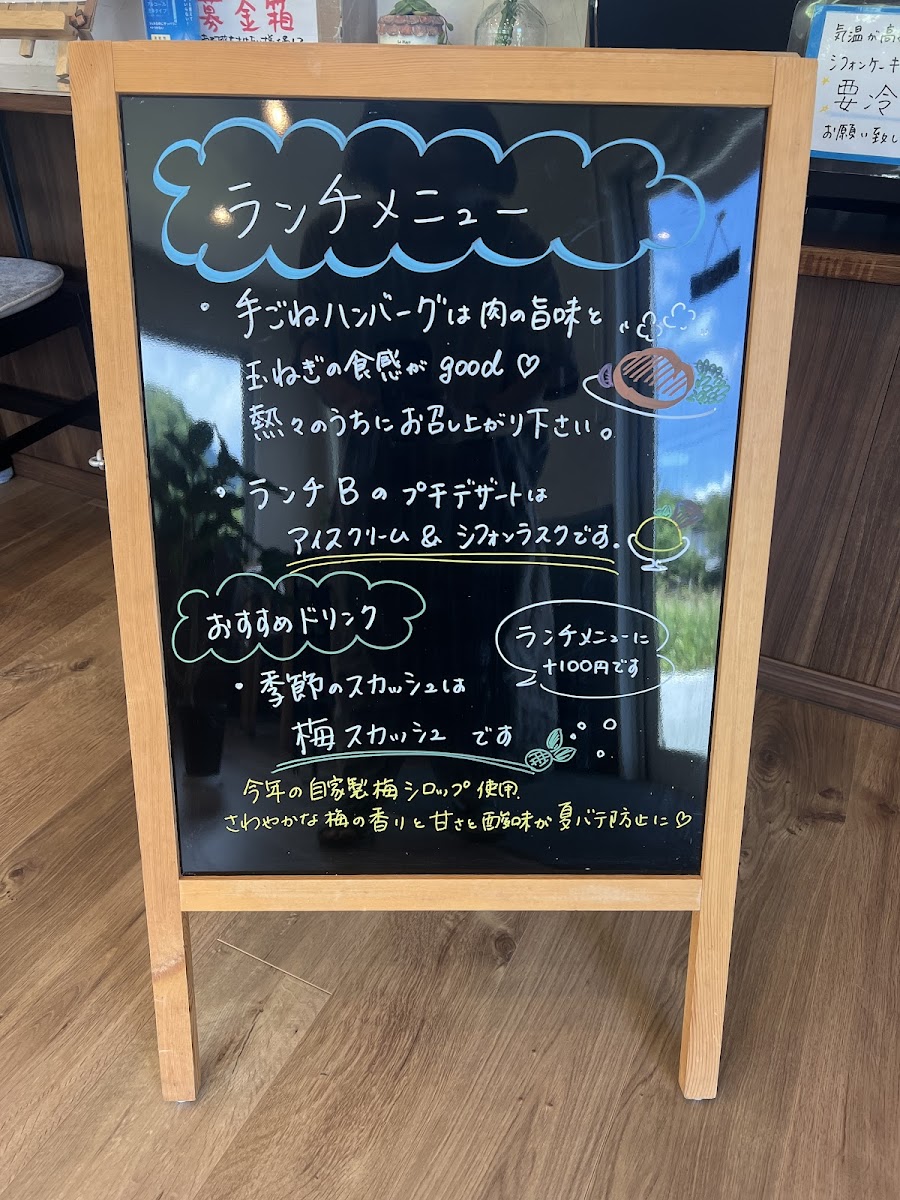 募金箱
気温が高
シフォンケーキ
要冷
お願い致し
ランチメニュー
・手ごねハンバーグは肉の旨味と
玉ねぎの食感がgood♡
熱々のうちにお召し上がり下さい。
・ランチBのプチデザートは
アイスクリーム & シフォンラスクです。
おすすめドリンク
ランチメニューに
+100円です
・季節のスカッシュは
梅スカッシュ です
今年の自家製梅シロップ使用
さわやかな梅の香りと甘さと酸味が夏バテ防止に♡